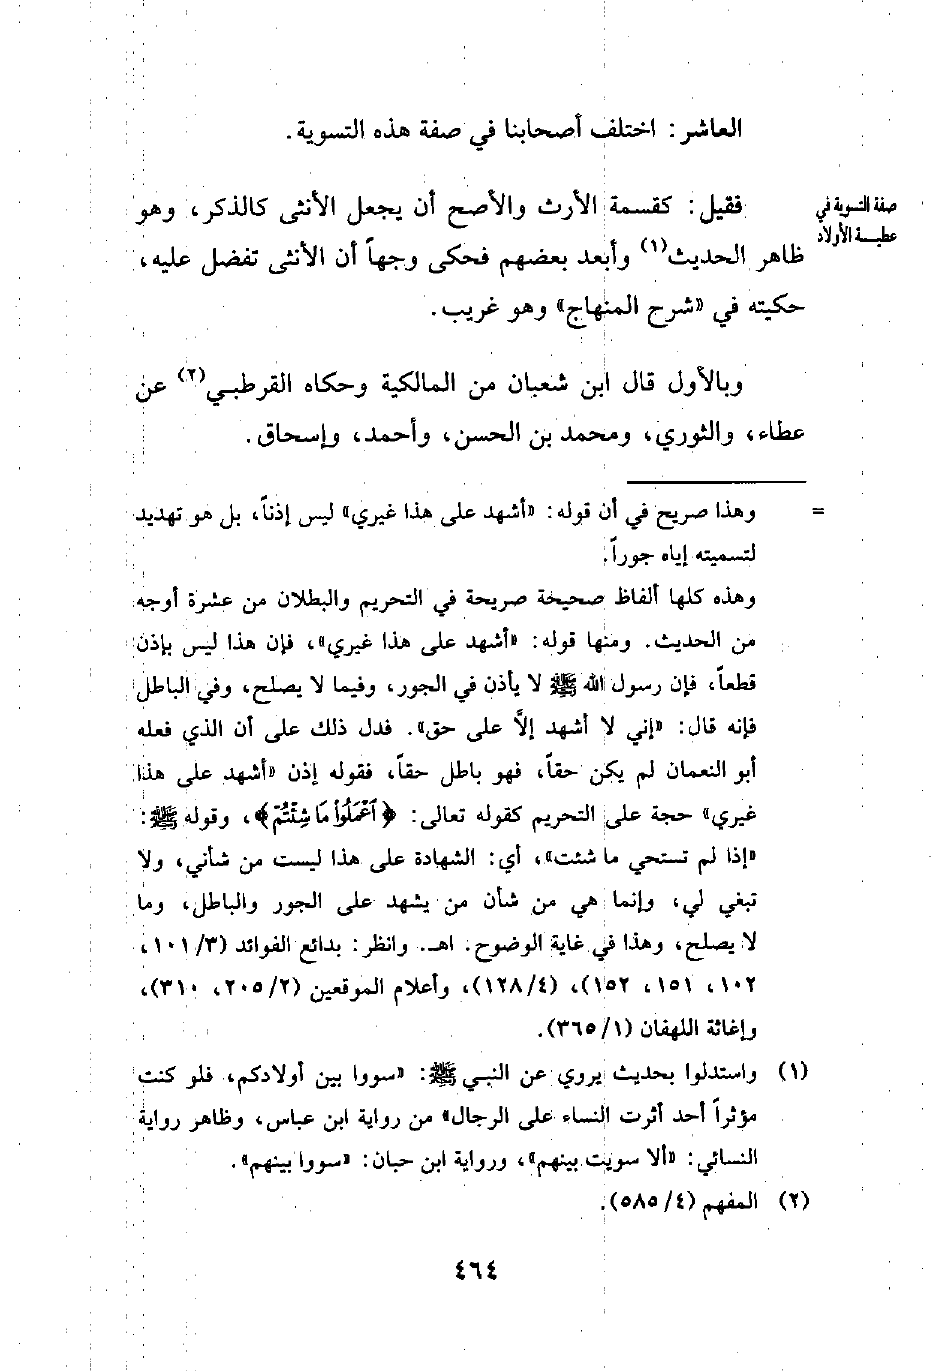 العاشر: اختلف أصحابنا في صفة هذه التسوية.
صفة التسوية في
عطية الأولاد
فقيل: كقسمة الأرث والأصح أن يجعل الأنثى كالذكر، وهو
ظاهر الحديث(١) وأبعد بعضهم فحكى وجهاً أن الأنثى تفضل عليه،
حكيته في «شرح المنهاج» وهو غريب.
وبالأول قال ابن شعبان من المالكية وحكاه القرطبي(٢) عن
عطاء، والثوري، ومحمد بن الحسن، وأحمد، وإسحاق.
= وهذا صريح في أن قوله: «أشهد على هذا غيري» ليس إذناً، بل هو تهديد
لتسميته إياه جوراً.
وهذه كلها ألفاظ صحيحة صريحة في التحريم والبطلان من عشرة أوجه
من الحديث. ومنها قوله: «أشهد على هذا غيري»، فإن هذا ليس بإذن
قطعاً، فإن رسول الله ﷺ لا يأذن في الجور، وفيما لا يصلح، وفي الباطل
فإنه قال: «إني لا أشهد إلَّا على حق». فدل ذلك على أن الذي فعله
أبو النعمان لم يكن حقاً، فهو باطل حقاً، فقوله إذن «أشهد على هذا
غيري» حجة على التحريم كقوله تعالى: ﴿ٱعْمَلُوا۟ مَا شِئْتُمْ﴾، وقوله ﷺ:
«إذا لم تستحي ما شئت»، أي: الشهادة على هذا ليست من شأني، ولا
تبغي لي، وإنما هي من شأن من يشهد على الجور والباطل، وما
لا يصلح، وهذا في غاية الوضوح. اهـ. وانظر: بدائع الفوائد (٣/ ١٠١،
١٠٢، ١٥١، ١٥٢)، (٤/ ١٢٨)، وأعلام الموقعين (٢/ ٢٠٥، ٣١٠)،
وإغاثة اللهفان (١/ ٣٦٥).
(١) واستدلوا بحديث يروي عن النبي ﷺ: «سووا بين أولادكم، فلو كنت
مؤثراً أحد أثرت النساء على الرجال» من رواية ابن عباس، وظاهر رواية
النسائي: «ألا سويت بينهم»، ورواية ابن حبان: «سووا بينهم».
(٢) المفهم (٤/ ٥٨٥).
٤٦٤